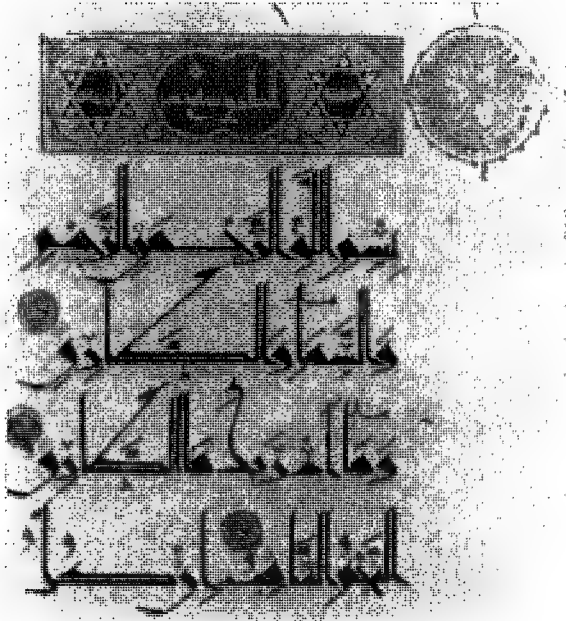 بسم الله الرحمن الرحيم
والسما والطارق
وما ادريك ما الطارق
النجم الثاقب ان كل